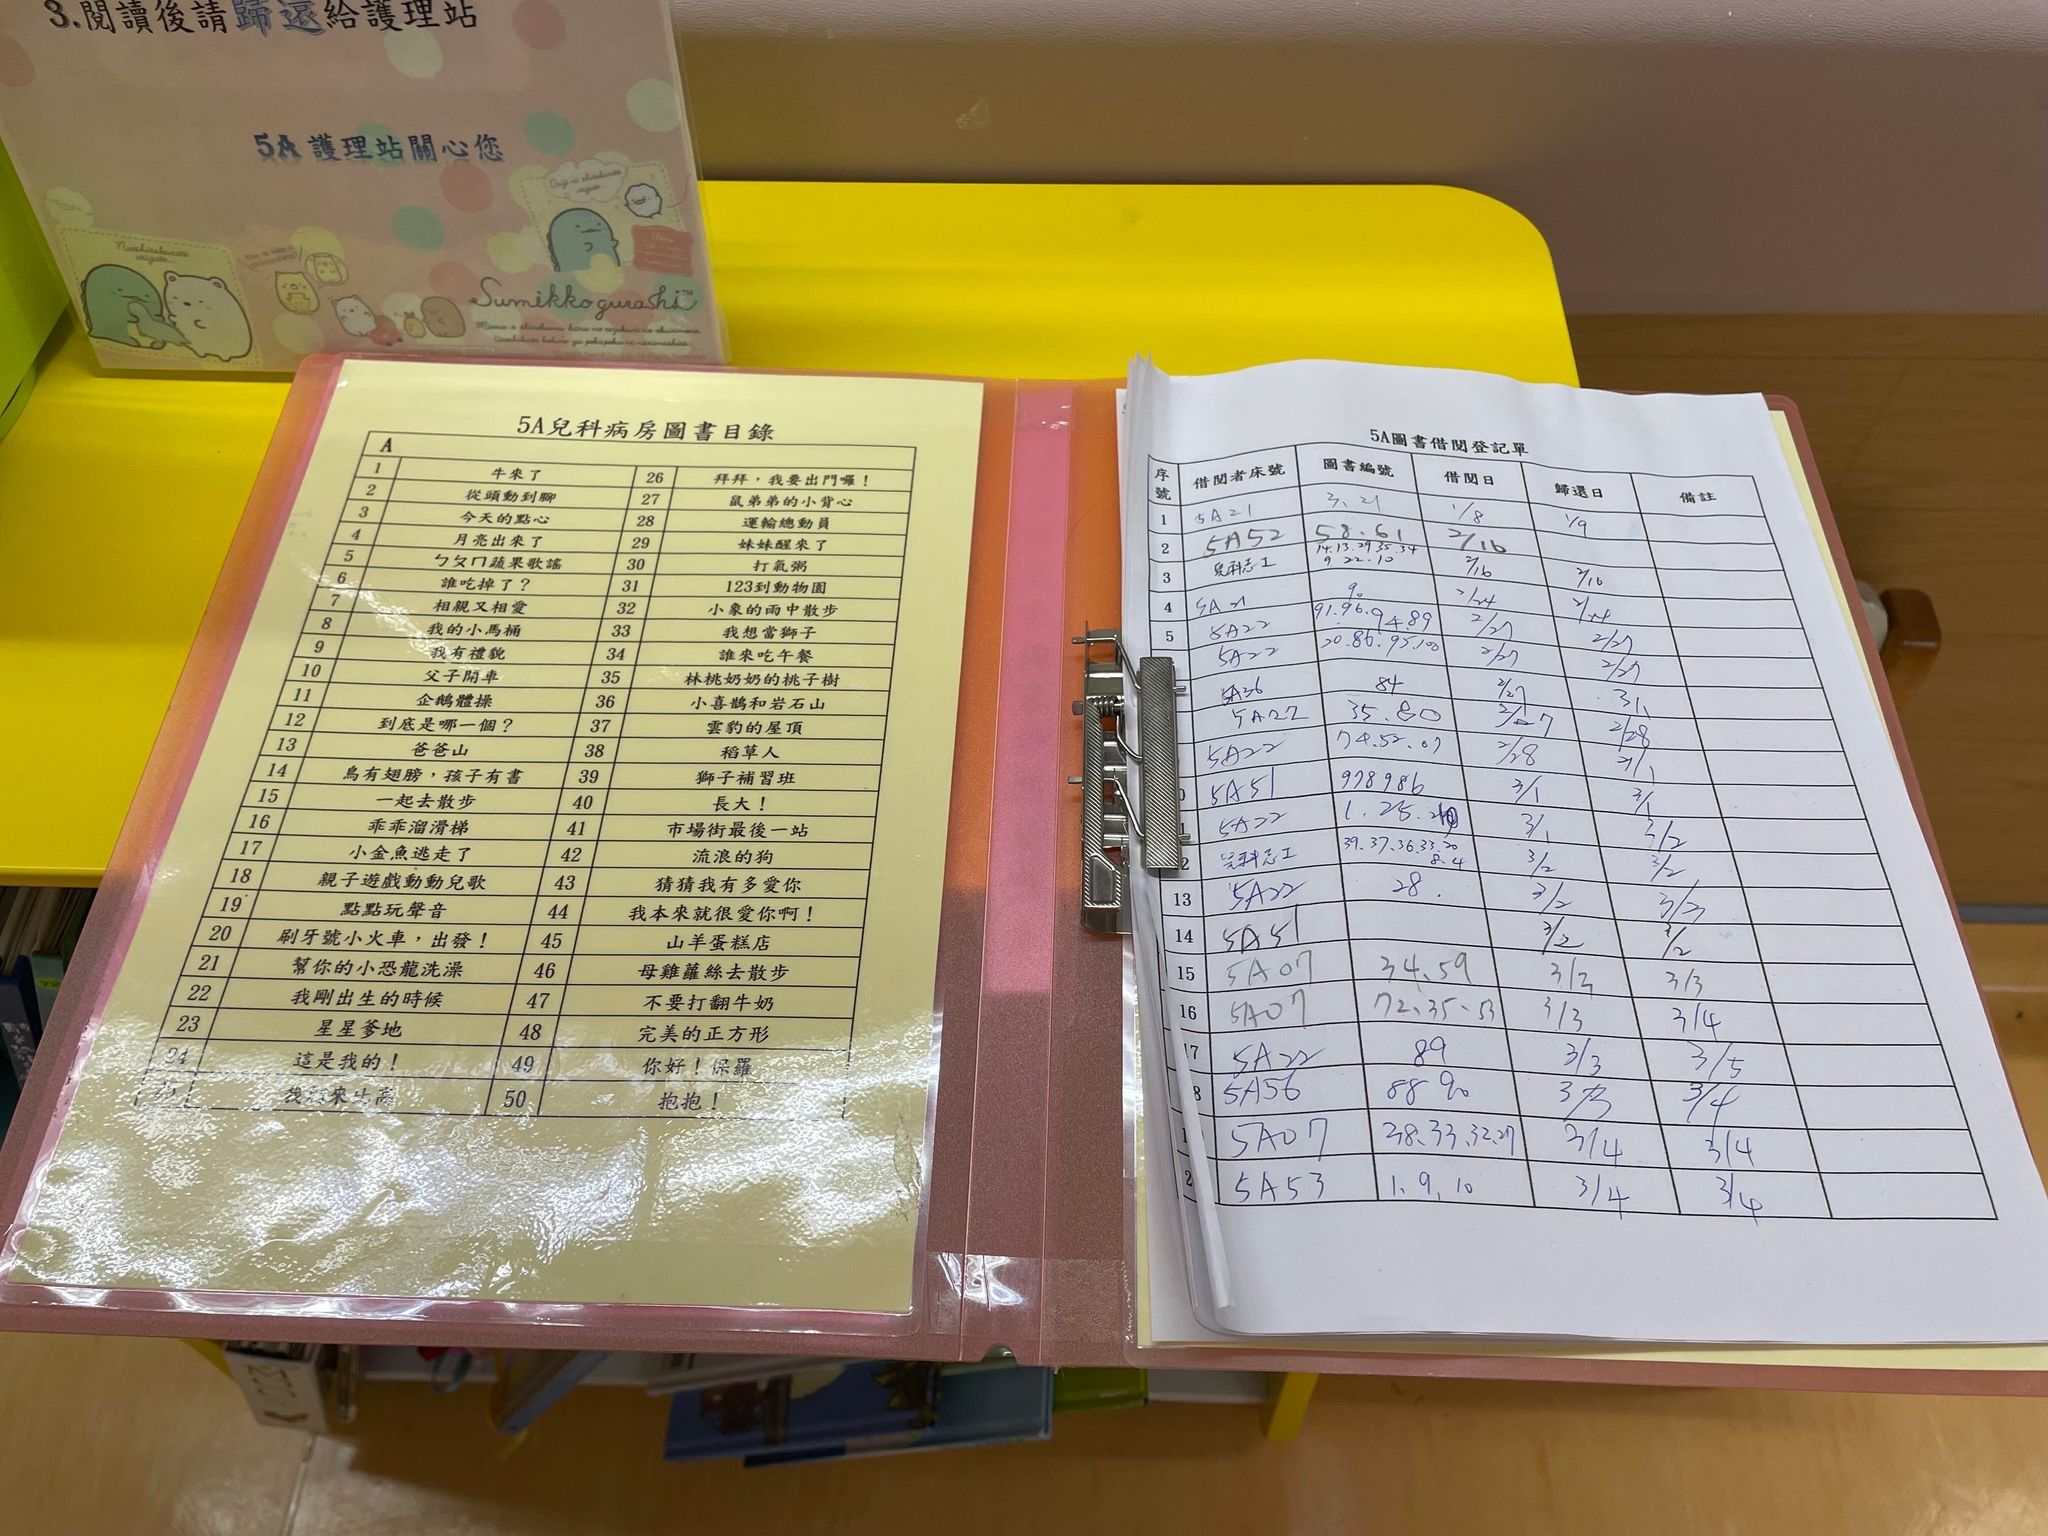 3.閱讀後請歸還給護理站
5A 護理站關心您
Sumikkogurashi
5A兒科病房圖書目錄
A
1 牛來了 26 拜拜，我要出門囉！
2 從頭動到腳 27 鼠弟弟的小背心
3 今天的點心 28 運輸總動員
4 月亮出來了 29 妹妹醒來了
5 ㄅㄆㄇ蔬果歌謠 30 打氣粥
6 誰吃掉了？ 31 123到動物園
7 相親又相愛 32 小象的雨中散步
8 我的小馬桶 33 我想當獅子
9 我有禮貌 34 誰來吃午餐
10 父子開車 35 林桃奶奶的桃子樹
11 企鵝體操 36 小喜鵲和岩石山
12 到底是哪一個？ 37 雲豹的屋頂
13 爸爸山 38 稻草人
14 鳥有翅膀，孩子有書 39 獅子補習班
15 一起去散步 40 長大！
16 乖乖溜滑梯 41 市場街最後一站
17 小金魚逃走了 42 流浪的狗
18 親子遊戲動動兒歌 43 猜猜我有多愛你
19 點點玩聲音 44 我本來就很愛你啊！
20 刷牙號小火車，出發！ 45 山羊蛋糕店
21 幫你的小恐龍洗澡 46 母雞蘿絲去散步
22 我剛出生的時候 47 不要打翻牛奶
23 星星爹地 48 完美的正方形
24 這是我的！ 49 你好！保羅
25 50 抱抱！
5A圖書借閱登記單
序號 借閱者床號 圖書編號 借閱日 歸還日 備註
1 5A21 3、21 1/8 1/9
2 5A52 58.61 2/16
3 兒科志工 14.13.29.35.34 9.22.10 2/16 2/16
4 5A21 90 2/24 2/24
5 5A22 91.96.94.89 2/27 2/27
5A22 20.86.95.100 2/27 2/27
5A36 84 2/27 3/1
5A22 35.80 2/27 2/28
5A22 74.52.07 2/28
5A51 978986 3/1 3/1
5A22 1.25. 3/1 3/2
兒科志工 39.37.36.33.20 8.4 3/2 3/2
13 5A22 28. 3/2 3/3
14 5A51 3/2 3/2
15 5A07 34.59 3/3 3/3
16 5A07 72.35.53 3/3 3/4
5A22 89 3/3 3/5
5A56 88 90 3/3 3/4
5A07 38.33.32.27 3/4 3/4
5A53 1.9.10 3/4 3/4